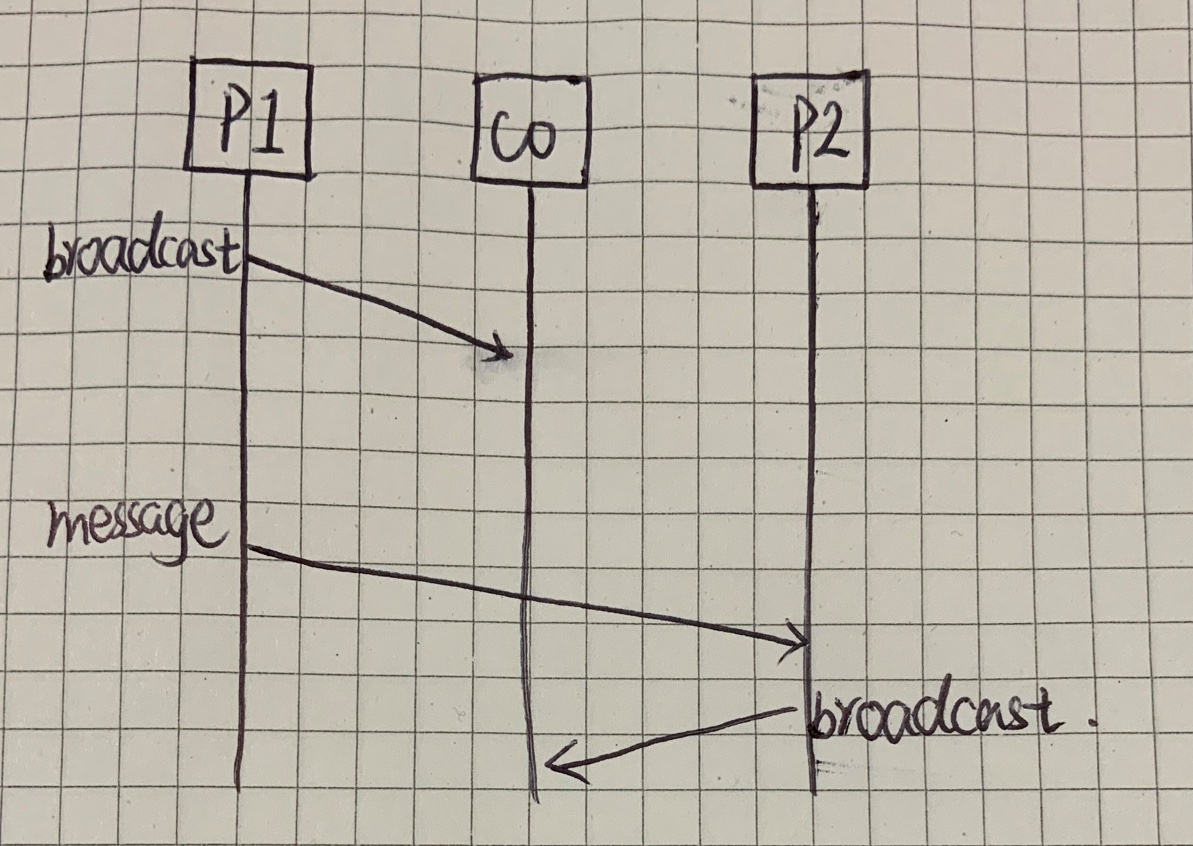 P1
CO
P2
broadcast
message
broadcast.